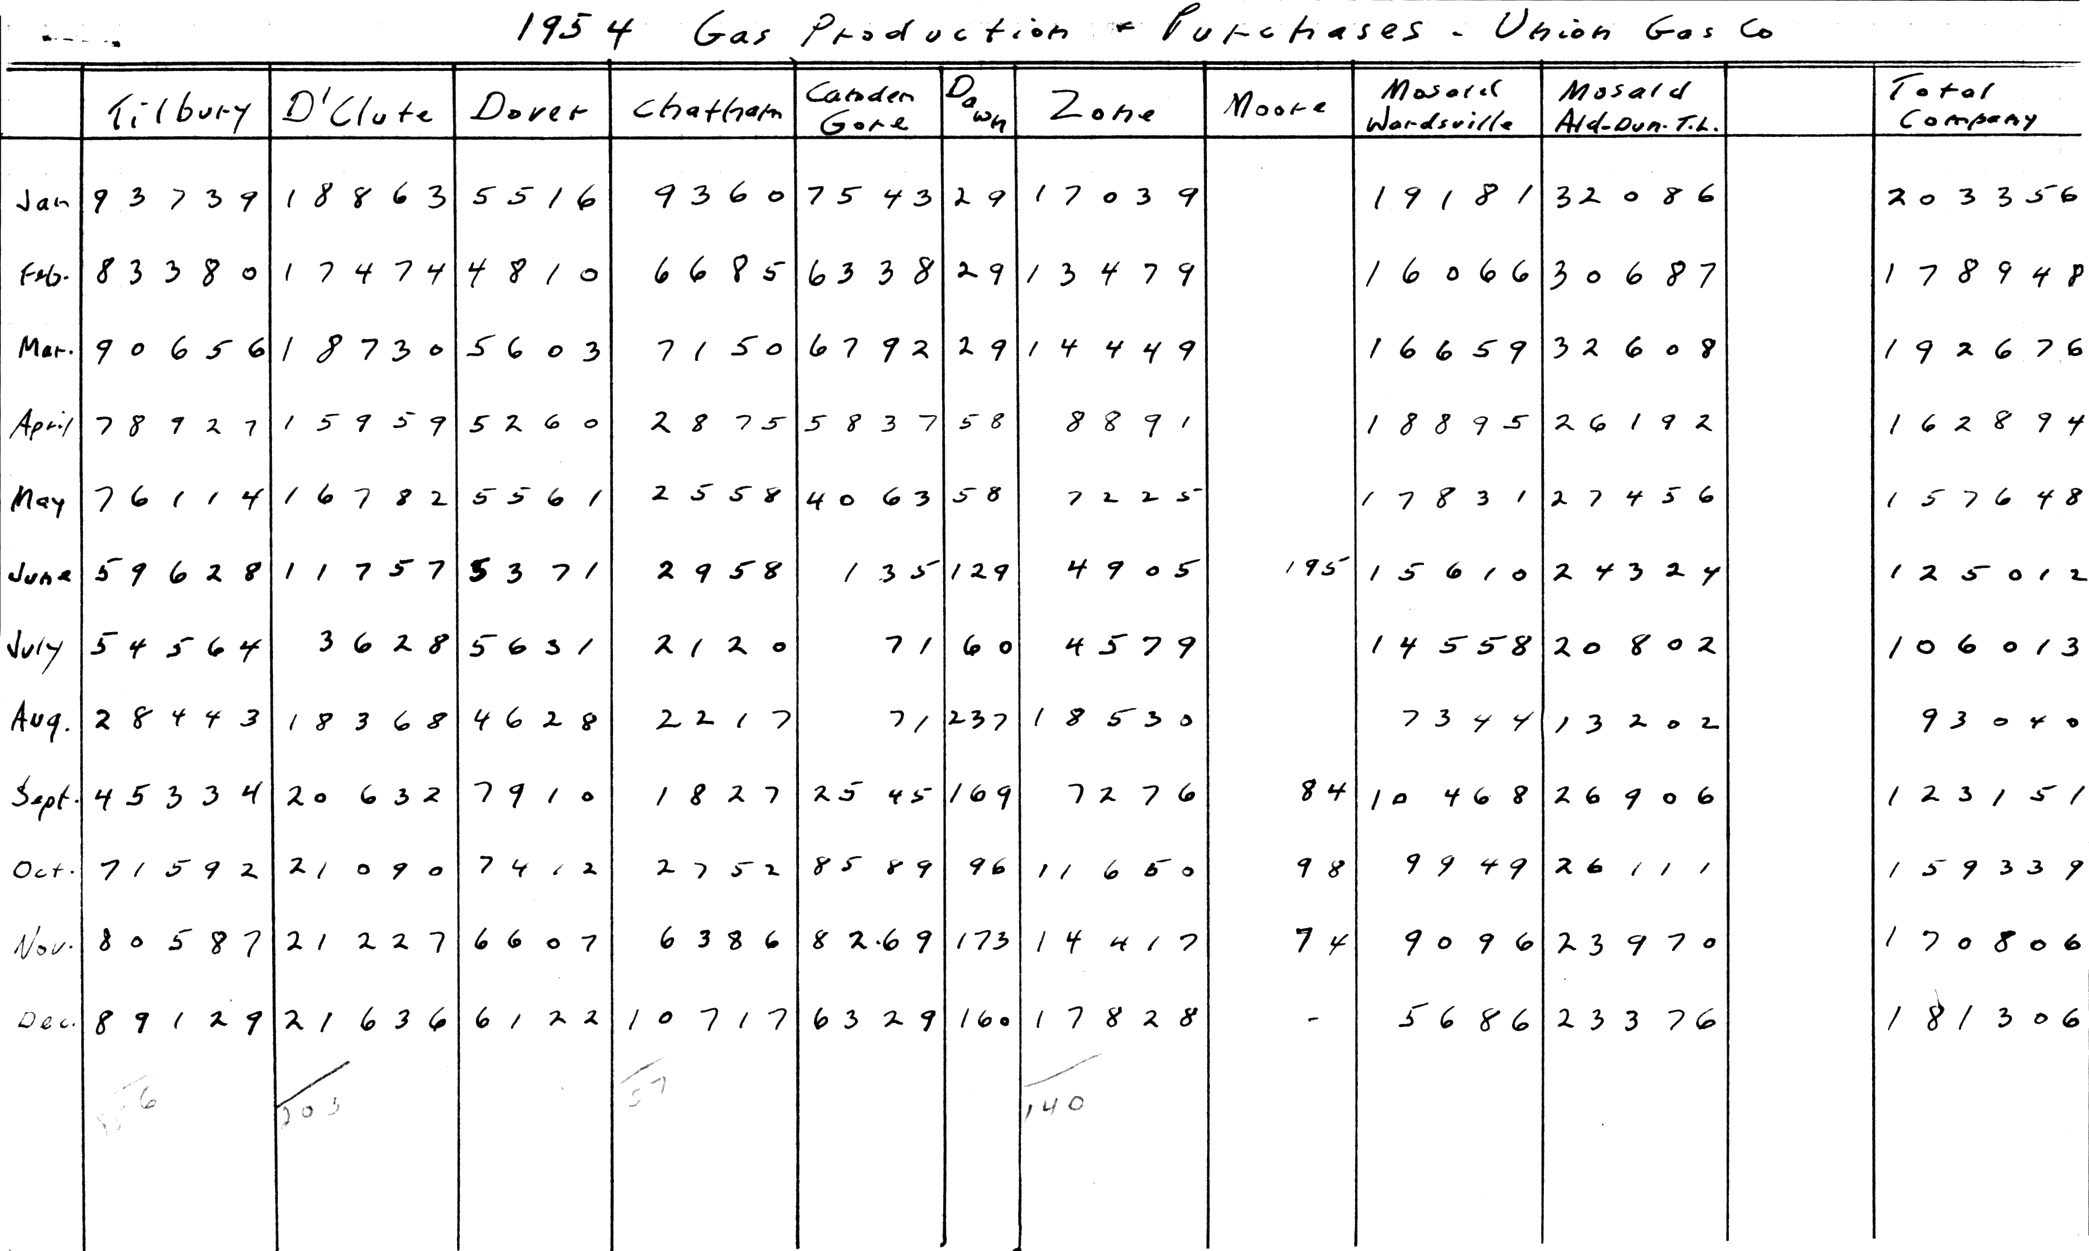 1954 Gas Production & Purchases - Union Gas Co
Tilbury D'Clute Dover Chatham Camden Gore Dawn Zone Moore Mosald Wardsville Mosald Ald-Dun. T.L. Total Company
Jan 93739 18863 5516 9360 7543 29 17039 19181 32086 203356
Feb. 83380 17474 4810 6685 6338 29 13479 16066 30687 178948
Mar. 90656 18730 5603 7150 6792 29 14449 16659 32608 192676
April 78927 15959 5260 2875 5837 58 8891 18895 26192 162894
May 76114 16782 5561 2558 4063 58 7225 17831 27456 157648
June 59628 11757 5371 2958 135 129 4905 195 15610 24324 125012
July 54564 3628 5631 2120 71 60 4579 14558 20802 106013
Aug. 28443 18368 4628 2217 71 237 18530 7344 13202 93040
Sept. 45334 20632 7910 1827 2545 169 7276 84 10468 26906 123151
Oct. 71592 21090 7412 2752 8589 96 11650 98 9949 26111 159339
Nov. 80587 21227 6607 6386 8269 173 14417 74 9096 23970 170806
Dec. 89129 21636 6122 10717 6329 160 17828 - 5686 23376 181306
203 57 140